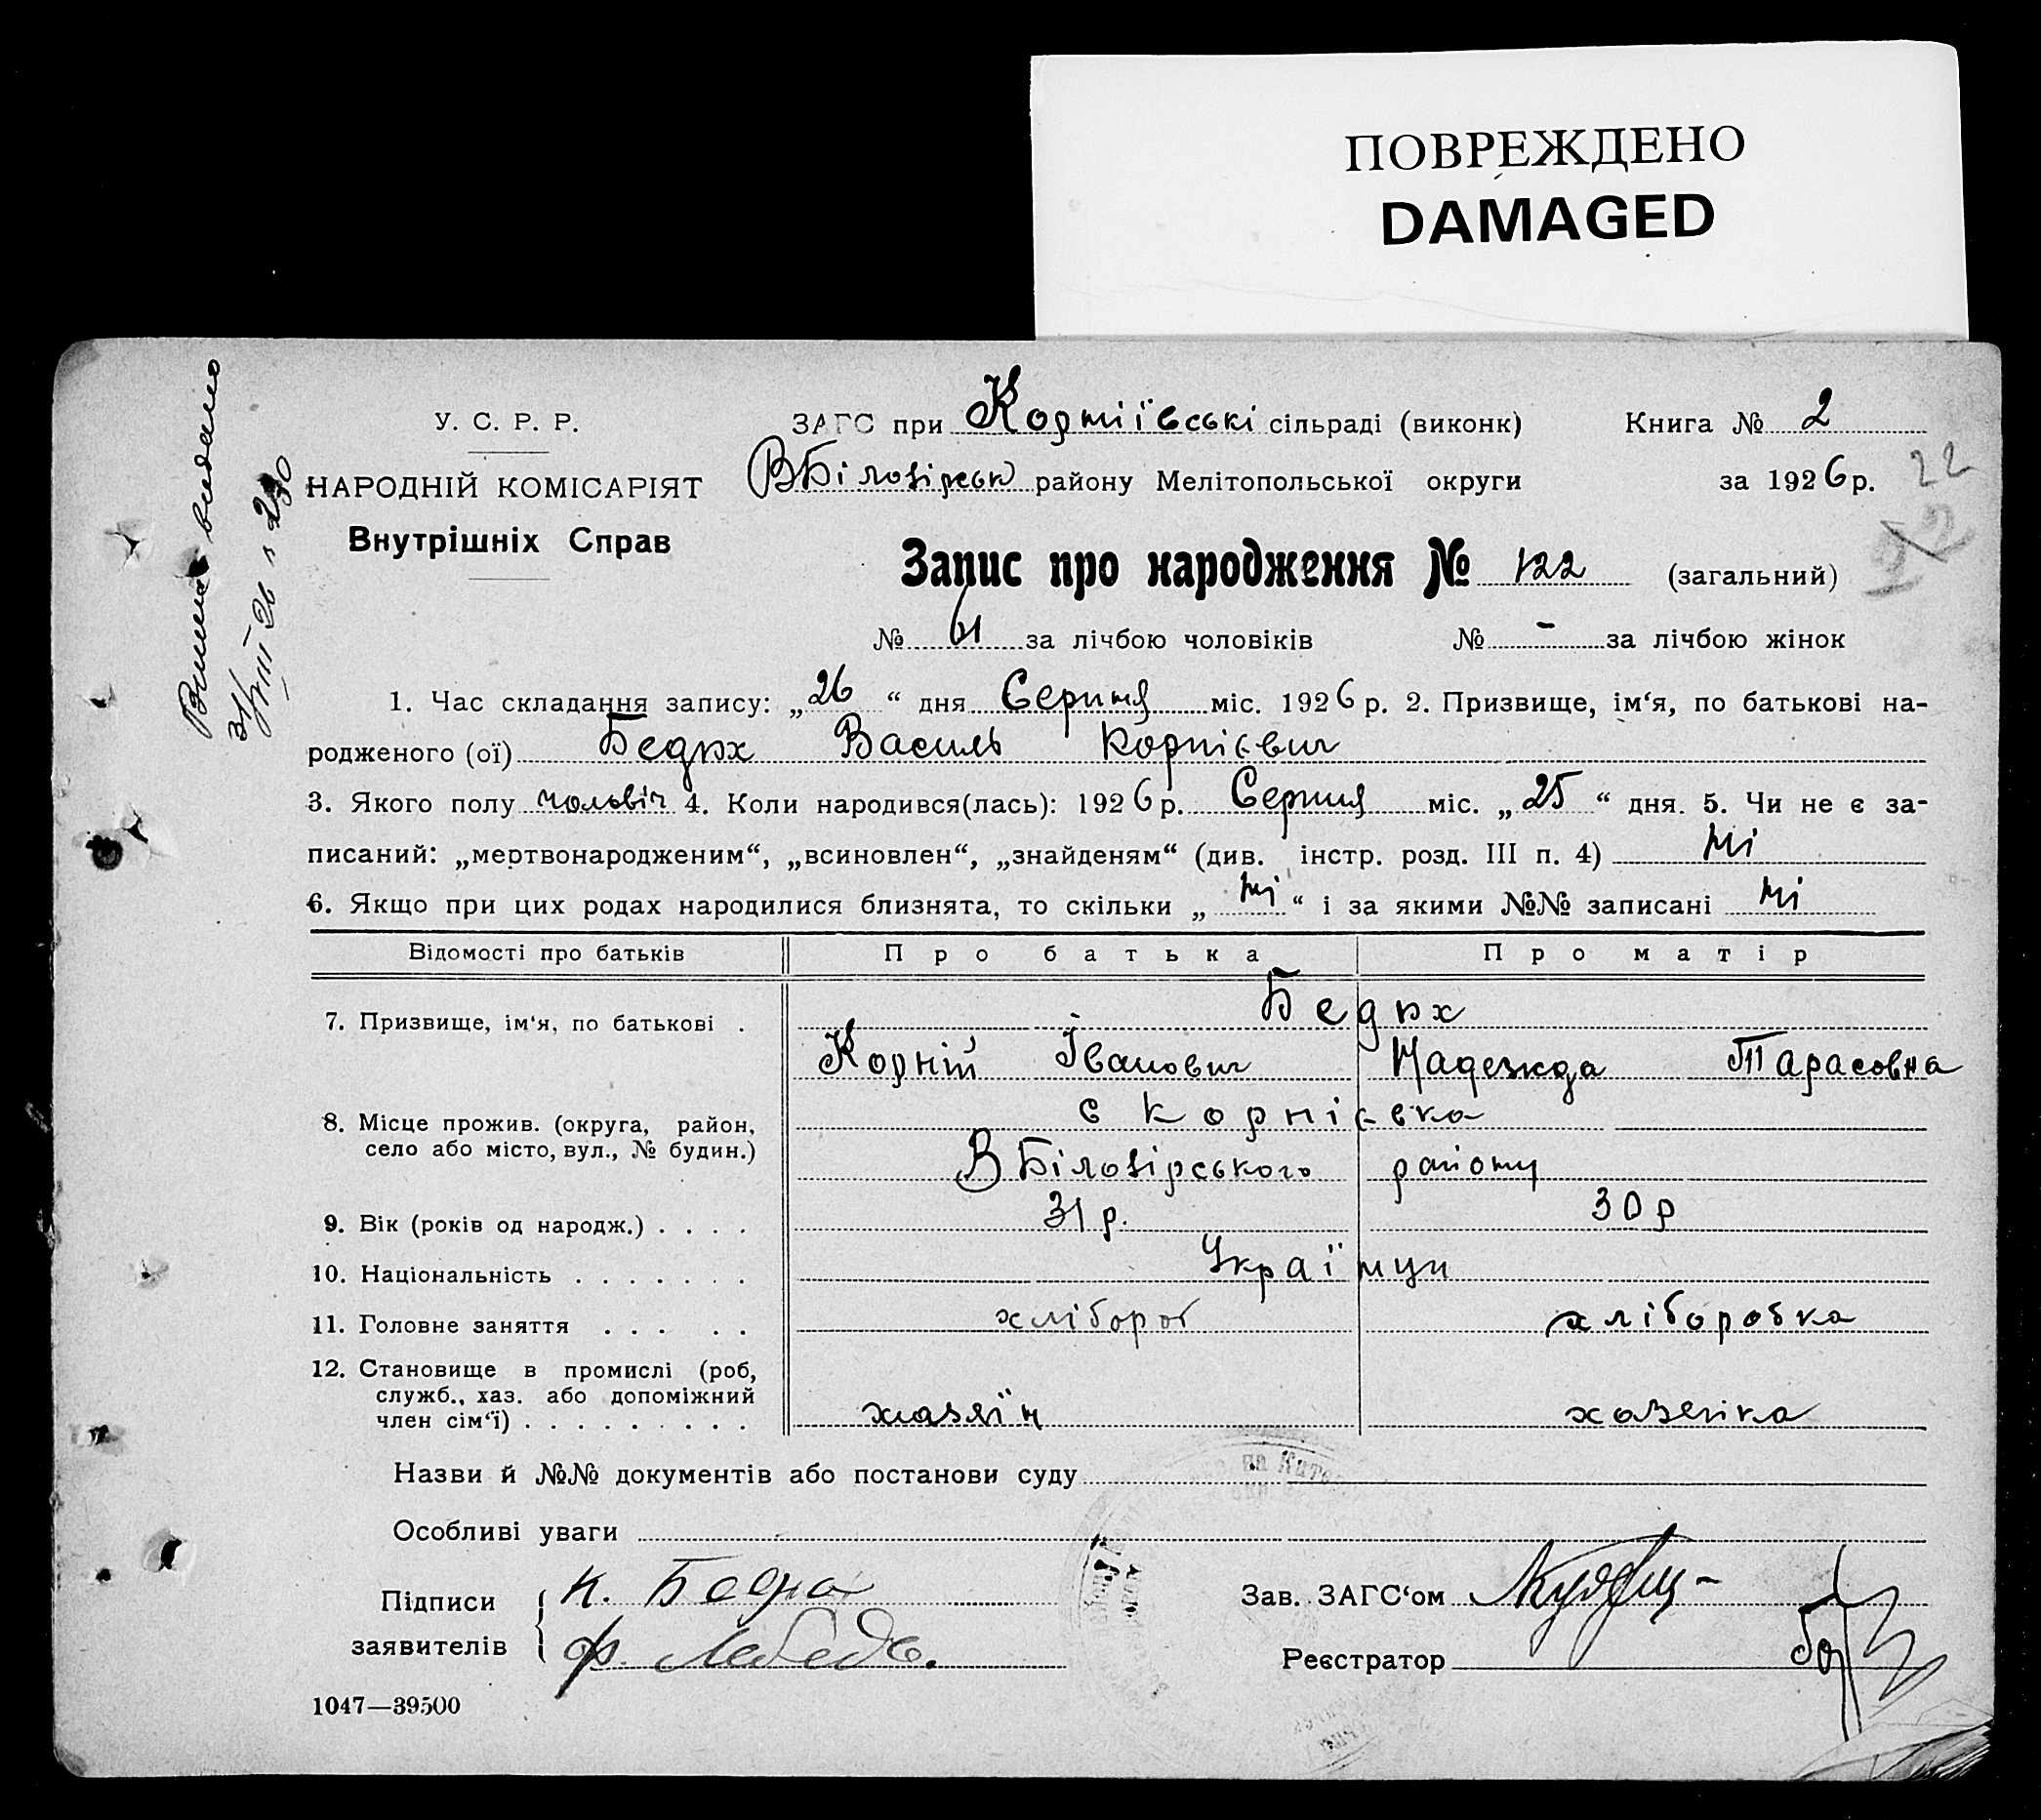 ПОВРЕЖДЕНО
DAMAGED
У. С. Р. Р.
НАРОДНІЙ КОМІСАРІЯТ
Внутрішніх Справ
ЗАГС при Корніївські сільраді (виконк)
ВБілозірськ району Мелітопольської округи
Книга № 2
за 1926 р.
22
Запис про народження № 122 (загальний)
№ 61 за лічбою чоловіків № - за лічбою жінок
1. Час складання запису: „26“ дня Серпня міс. 1926 р. 2. Призвище, ім‘я, по батькові на-
родженого (ої) Бедрх Василь Корнієвич
3. Якого полу чоловіч 4. Коли народився(лась): 1926 р. Серпня міс. „25“ дня. 5. Чи не є за-
писаний: „мертвонародженим“, „всиновлен“, „знайденям“ (див. інстр. розд. III п. 4) Ні
6. Якщо при цих родах народилися близнята, то скільки „Ні“ і за якими №№ записані Ні
Відомості про батьків Про батька Про матір
7. Призвище, ім‘я, по батькові . Бедрх
Корній Іванович Надежда Тарасовна
8. Місце прожив. (округа, район, село або місто, вул., № будин.) с Корнієвка
ВБілозірського району
9. Вік (років од народж.) . . . . 31 р. 30 р
10. Національність . . . . . . . Українци
11. Головне заняття . . . . . хлібороб хліборобка
12. Становище в промислі (роб,
служб., хаз. або допоміжний
член сім‘ї) . . . . . . . . . хазяїн хазяйка
Назви й №№ документів або постанови суду
Особливі уваги
Підписи
заявителів
К. Бедра
Ф. Лебедь.
Зав. ЗАГС‘ом
Реєстратор
1047—39500
видано